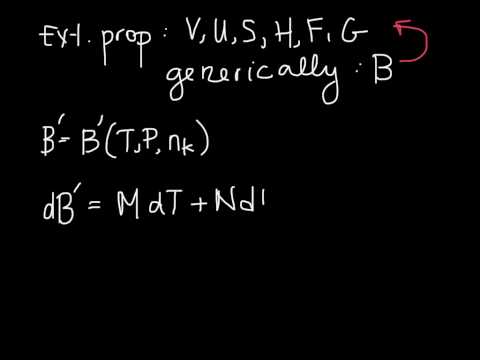 Ext. prop : V, U, S, H, F, G
generically : B
B' = B'(T, P, nₖ)
dB' = M dT + N dl